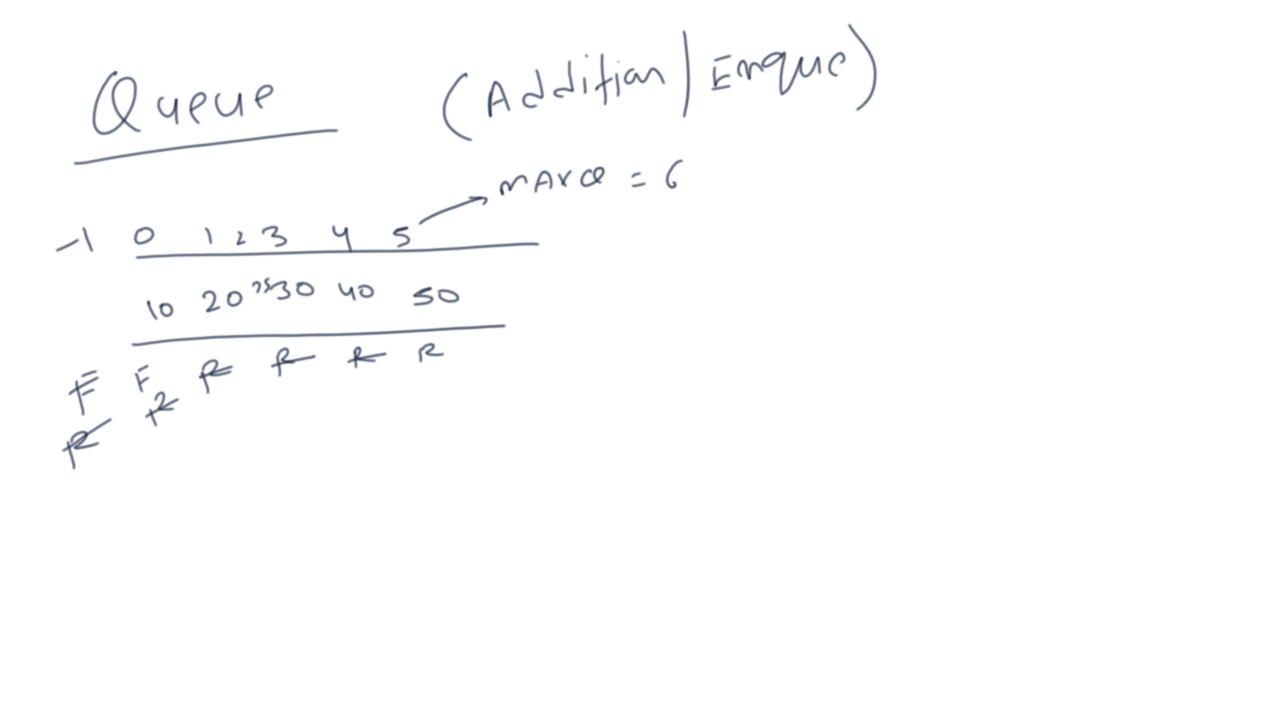 Queue (Addition/Enque)
MAXQ = 6
-1 0 1 2 3 4 5
10 20 25 30 40 50
F F R R R R
R R